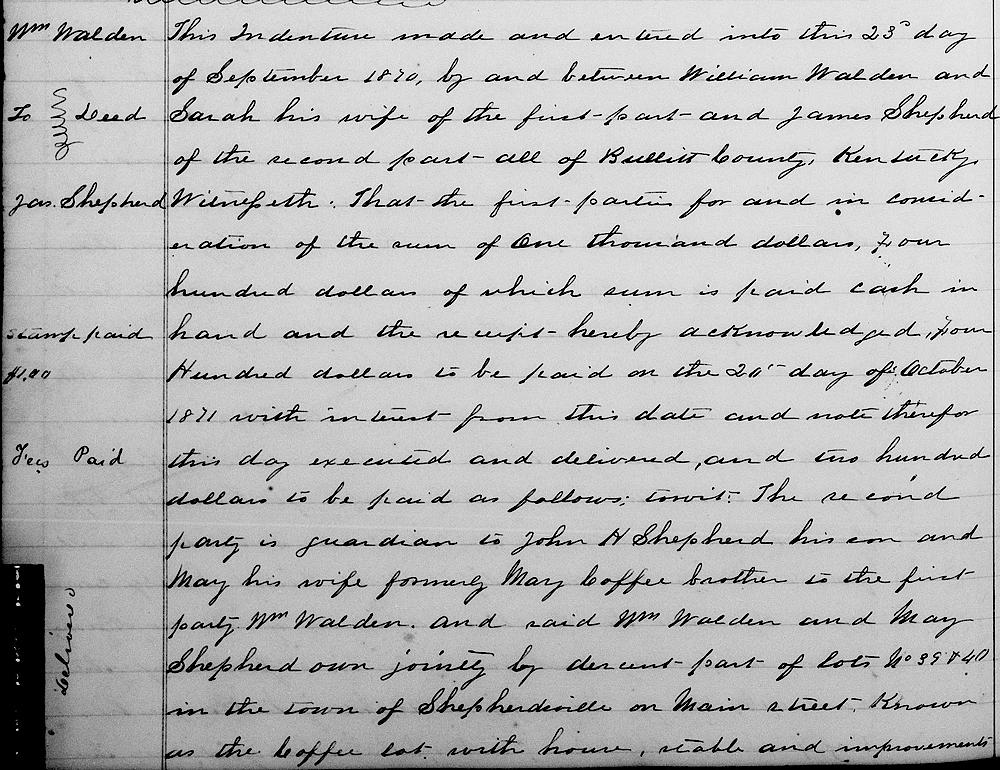 Wm Walden This Indenture made and entered into this 23d day
of September 1870, by and between William Walden and
To Deed Sarah his wife of the first part and James Shepherd
of the second part all of Bullitt County, Kentucky,
Jas. Shepherd Witnesseth: That the first parties for and in consid-
eration of the sum of One thousand dollars, Four
hundred dollars of which sum is paid cash in
Stamp paid hand and the receipt hereby acknowledged, Four
$1.00 Hundred dollars to be paid on the day of October
1871 with interest from this date and note therefor
Fees Paid this day executed and delivered, and two hundred
dollars to be paid as follows; towit: The second
party is guardian to John H Shepherd his son and
May his wife formerly May Coffee brother to the first
party Wm Walden. and said Wm Walden and May
Delivered
Shepherd own jointly by descent part of lots No 39 & 40
in the town of Shepherdsville on Main street, Known
as the Coffee lot with house, stable and improvements